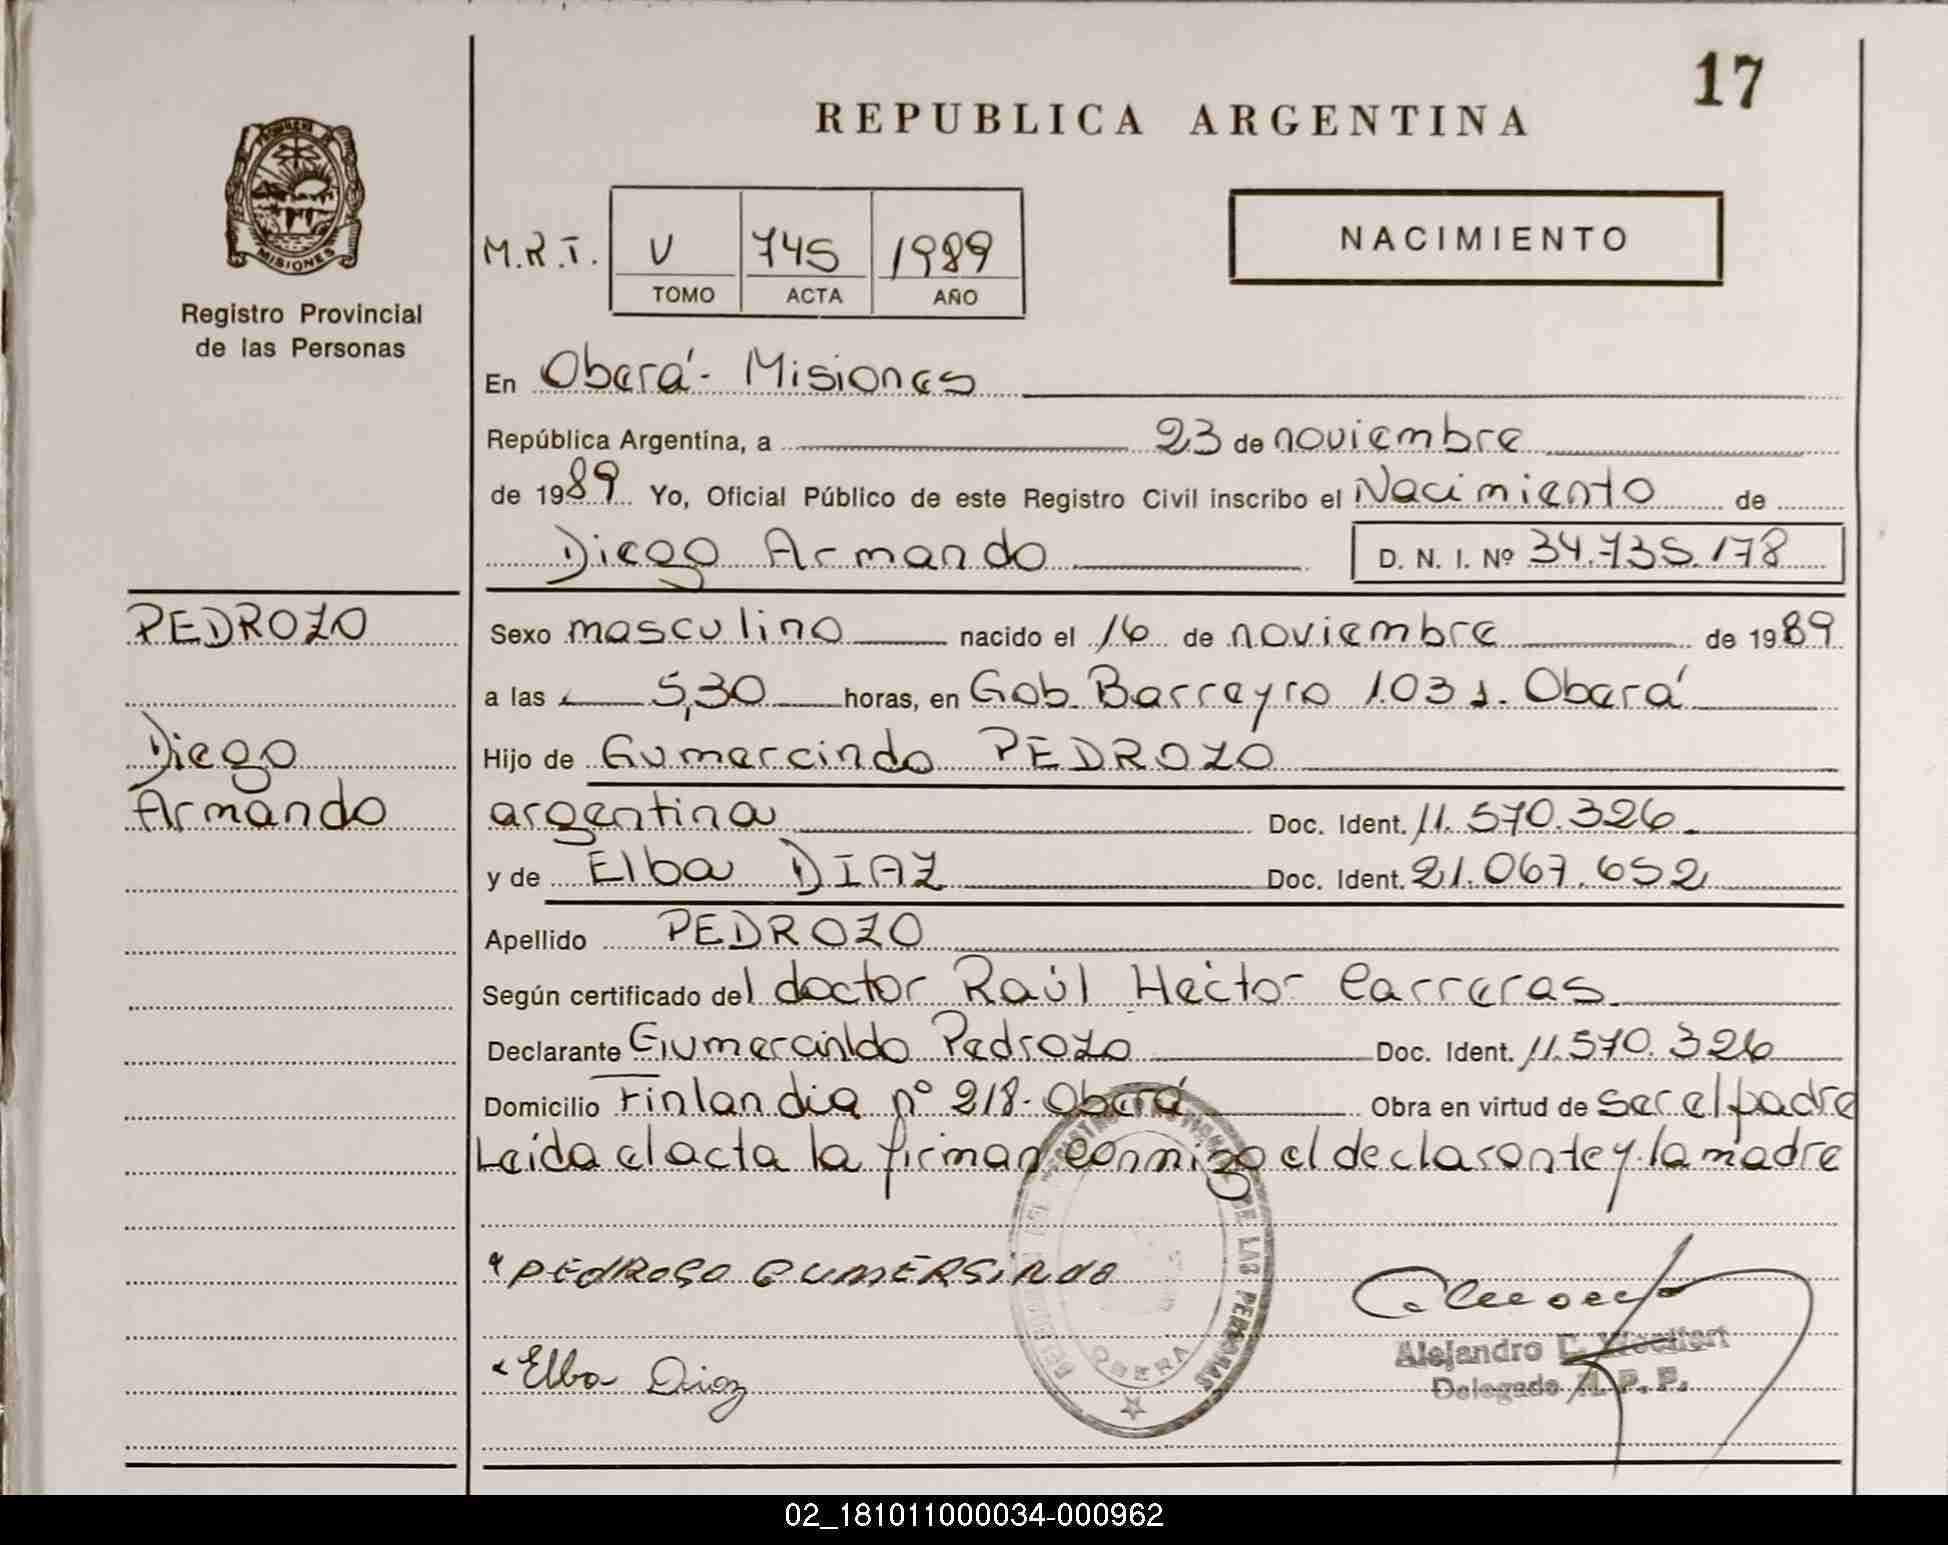 17
REPUBLICA ARGENTINA
MISIONES
Registro Provincial
de las Personas
M.R.T. V 745 1989
TOMO ACTA AÑO
NACIMIENTO
En Oberá - Misiones
República Argentina, a 23 de noviembre
de 1989 Yo, Oficial Público de este Registro Civil inscribo el Nacimiento de
Diego Armando D. N. I. Nº 34.735.178
PEDROZO
Diego
Armando
Sexo masculino nacido el 16 de noviembre de 1989
a las 5,30 horas, en Gob. Barreyro 103 . Oberá
Hijo de Gumercindo PEDROZO
argentina Doc. Ident. 11.570.326
y de Elba DIAZ Doc. Ident. 21.067.652
Apellido PEDROZO
Según certificado del doctor Raúl Héctor Carreras
Declarante Gumercindo Pedrozo Doc. Ident. 11.570.326
Domicilio Finlandia nº 218 - Oberá Obra en virtud de ser el padre
Leída el acta la firman conmigo el declarante y la madre
PEDROSO GUMERSINDO
Elba Diaz
DE LAS PERSONAS
OBERA
Alejandro
Delegado R. P. P.
02_181011000034-000962